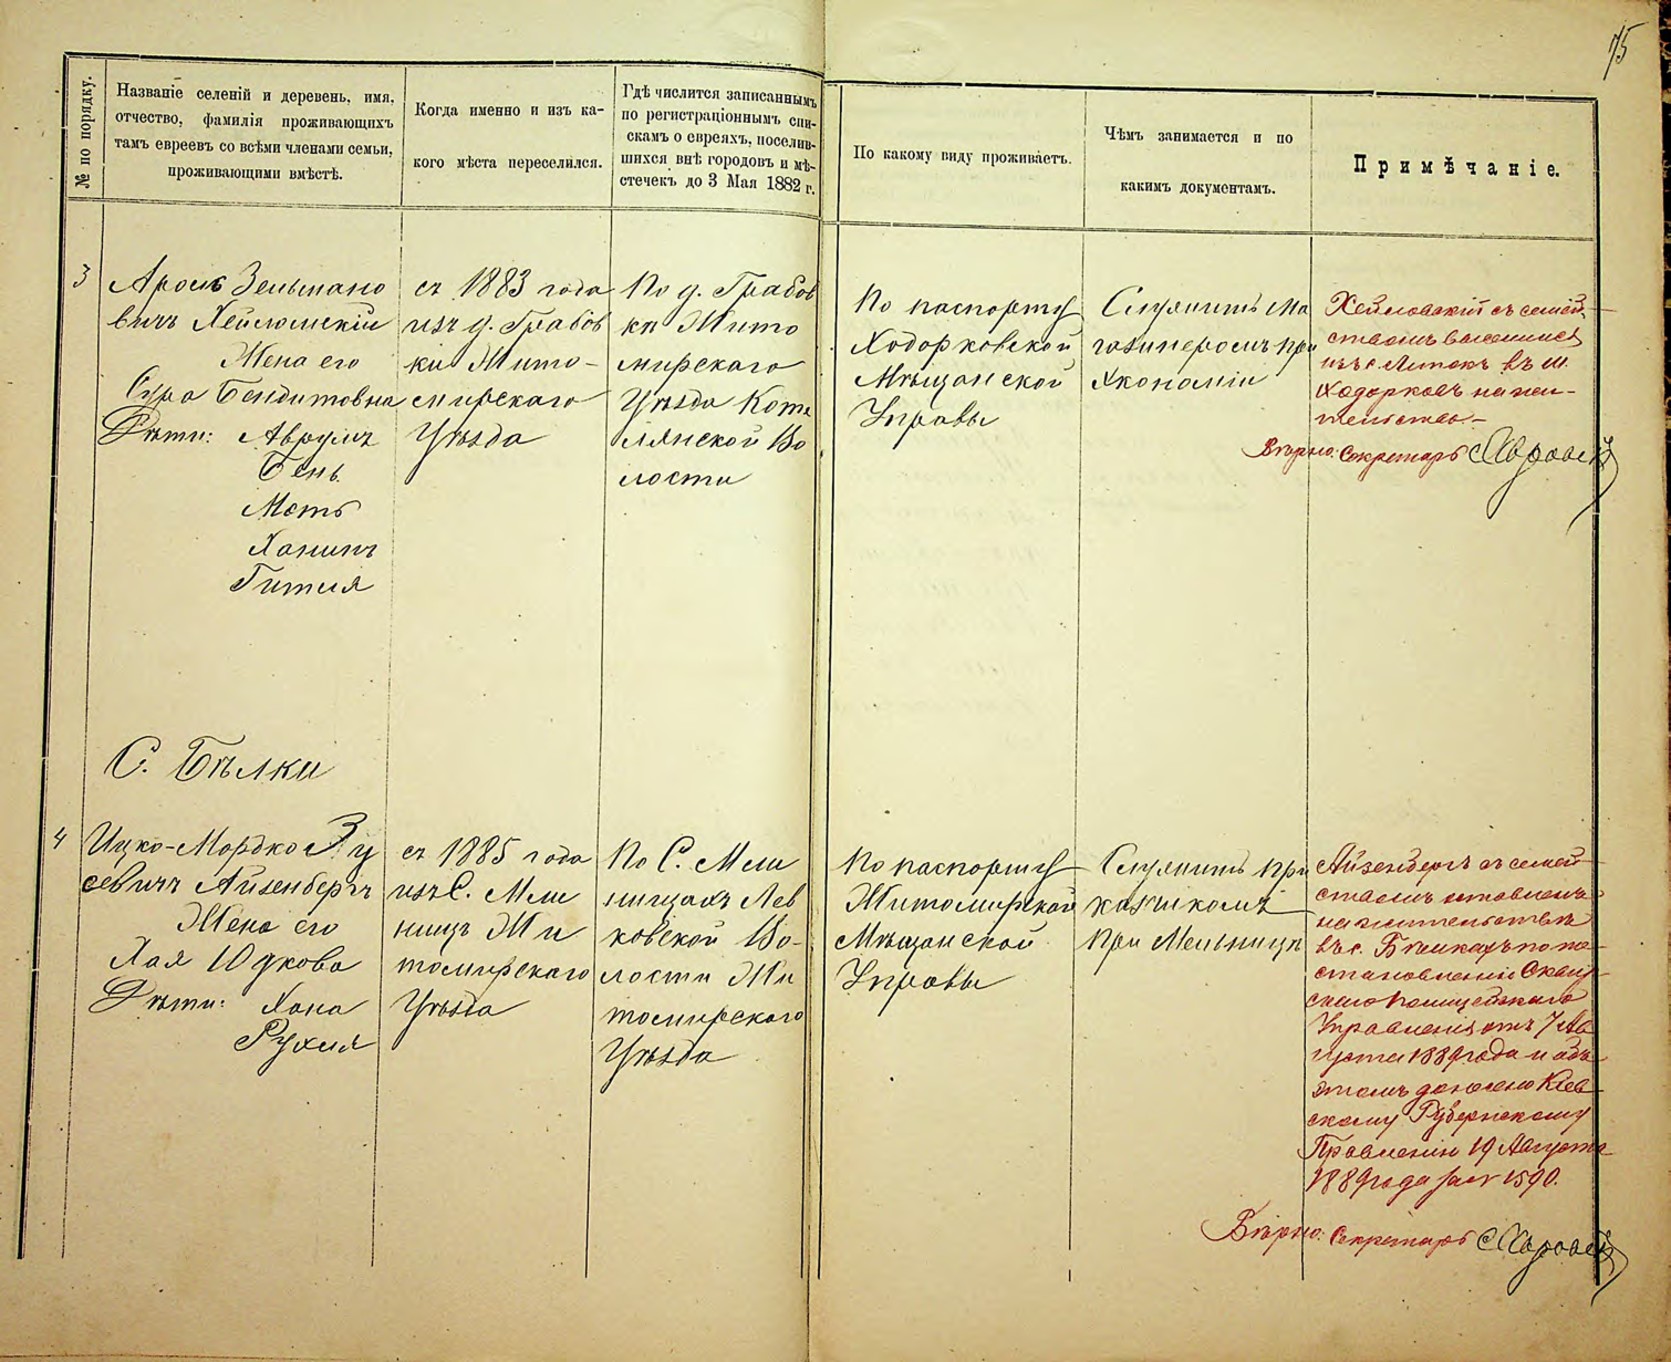 75
№ по порядку.
Названіе селеній и деревень, имя,
отчество, фамилія проживающихъ
тамъ евреевъ со всѣми членами семьи,
проживающими вмѣстѣ.
Когда именно и изъ ка-
кого мѣста переселился.
Гдѣ числится записаннымъ
по регистраціоннымъ спи-
скамъ о евреяхъ, поселив-
шихся внѣ городовъ и мѣ-
стечекъ до 3 Мая 1882 г.
По какому виду проживаетъ.
Чѣмъ занимается и по
какимъ документамъ.
Примѣчаніе.
3
Аронъ Зельмано
вичъ
Жена его
Сура Бендитовна
Дѣти: Аврумъ
Бень
Мотъ
Ханинъ
Гитля
съ 1883 года
изъ д. Грабов
ки Жито-
мирскаго
Уѣзда
По д. Грабов
кѣ Жито
мирскаго
Уѣзда Коте
лянской Во
лости
По паспорту
Ходорковской
Мѣщанской
Управы
Служитъ ма
газинеромъ при
Экономіи
съ семей-
ствомъ выселился
изъ с. въ м.
Ходорковъ на жи-
тельство.-
Вѣрно: Секретарь
С. Бѣлки
4
Ицко-Мордко Зу
севичъ Айзенбергъ
Жена его
Хая Юдкова
Дѣти: Хана
Рухля
съ 1885 года
изъ С. Мли
ницъ Жи
томирскаго
Уѣзда
По С. Мли
ницахъ Лев
ковской Во-
лости Жи
томирскаго
Уѣзда
По паспорту
Житомирской
Мѣщанской
Управы
Служитъ при
кащикомъ
при Мельницѣ
Айзенбергъ съ семей-
ствомъ оставленъ
на жительствѣ
въ с. Бѣлкахъ по по-
становленію Сквир-
скаго Полицейскаго
Управленія отъ 7 Ав
густа 1889 года и объ
этомъ донесено Кіев
скому Губернскому
Правленію 19 Августа
1889 года за № 1590.
Вѣрно: Секретарь